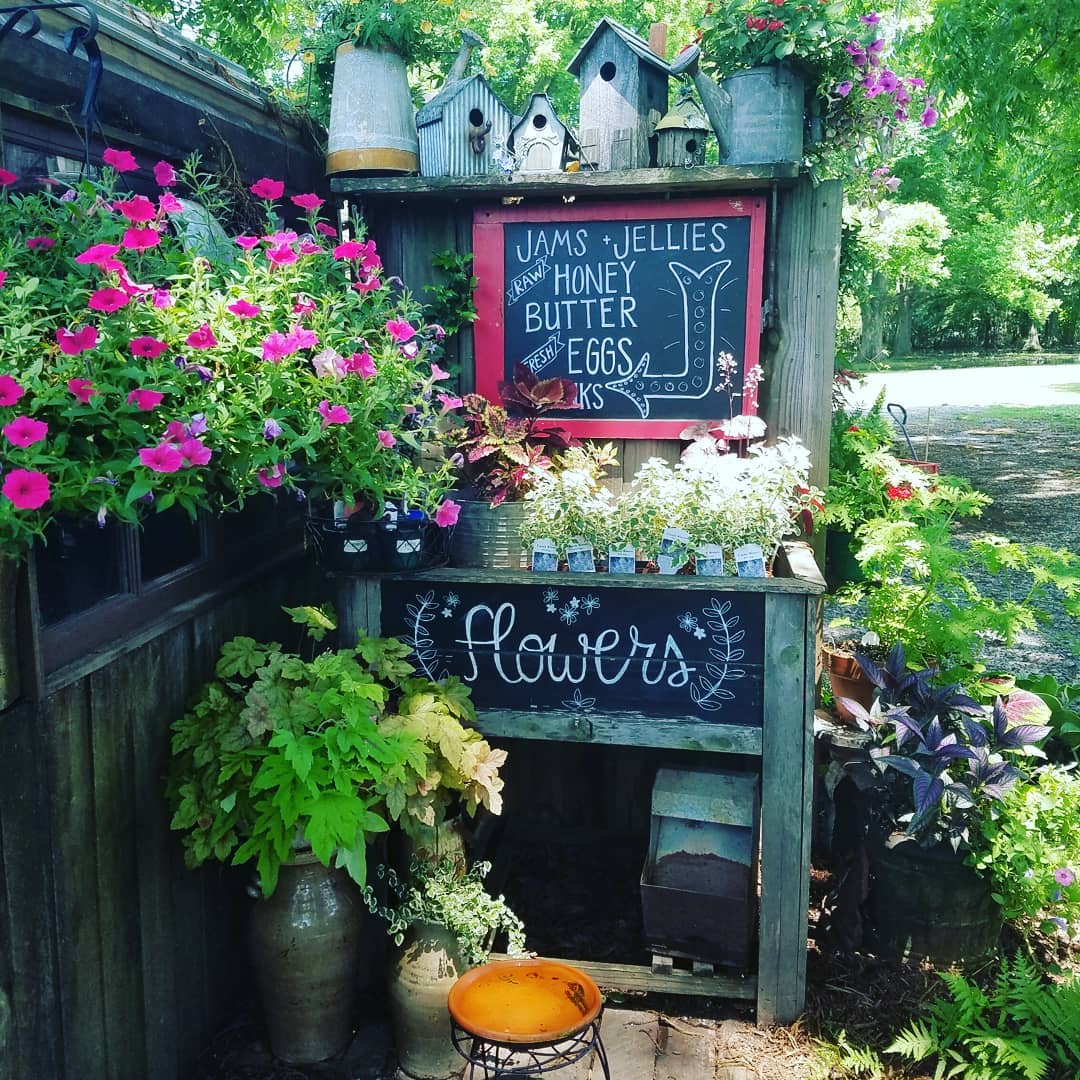 JAMS + JELLIES
RAW HONEY
BUTTER
FRESH EGGS
Flowers